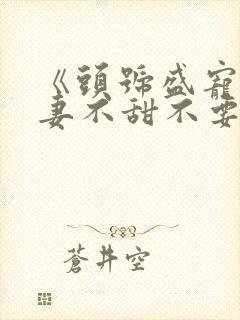 《頭號盛寵
妻不甜不要
蒼井空